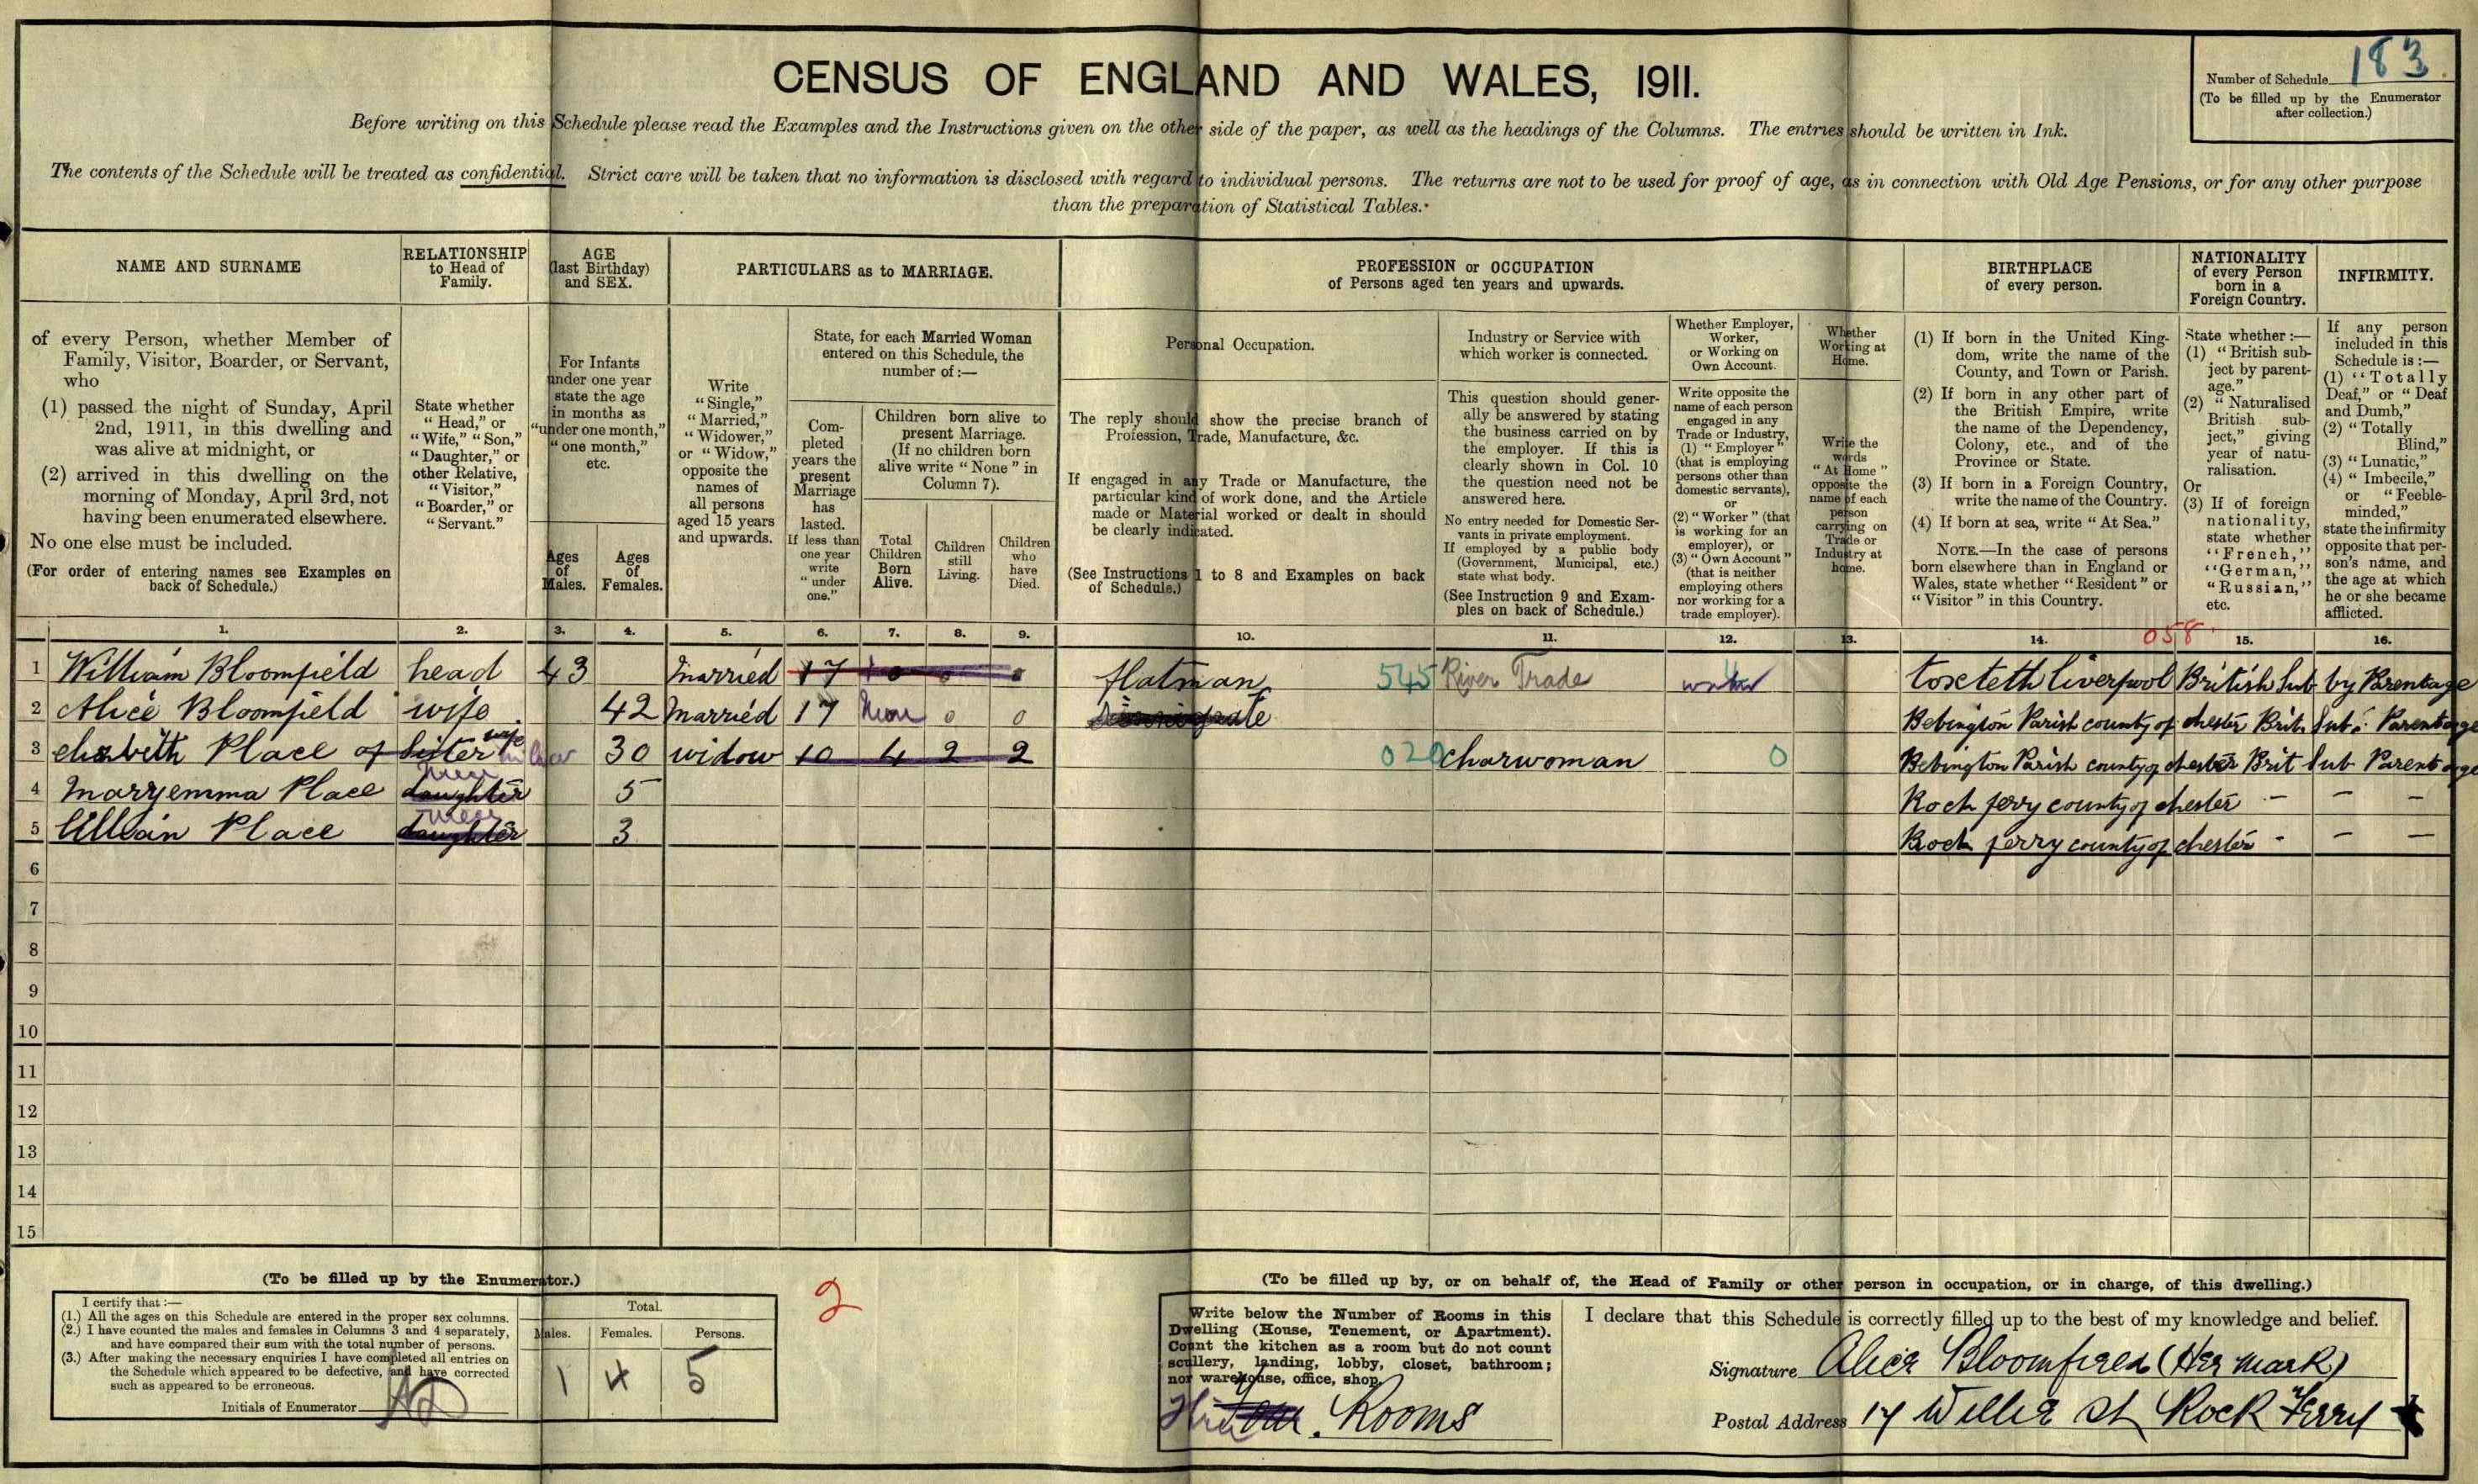 CENSUS OF ENGLAND AND WALES, 1911.
Number of Schedule 183
(To be filled up by the Enumerator after collection.)
Before writing on this Schedule please read the Examples and the Instructions given on the other side of the paper, as well as the headings of the Columns. The entries should be written in Ink.
The contents of the Schedule will be treated as confidential. Strict care will be taken that no information is disclosed with regard to individual persons. The returns are not to be used for proof of age, as in connection with Old Age Pensions, or for any other purpose
than the preparation of Statistical Tables.
NAME AND SURNAME
of every Person, whether Member of
Family, Visitor, Boarder, or Servant,
who
(1) passed the night of Sunday, April
2nd, 1911, in this dwelling and
was alive at midnight, or
(2) arrived in this dwelling on the
morning of Monday, April 3rd, not
having been enumerated elsewhere.
No one else must be included.
(For order of entering names see Examples on
back of Schedule.)
RELATIONSHIP
to Head of
Family.
State whether
"Head," or
"Wife," "Son,"
"Daughter," or
other Relative,
"Visitor,"
"Boarder," or
"Servant."
AGE
(last Birthday)
and SEX.
For Infants
under one year
state the age
in months as
"under one month,"
"one month,"
etc.
Ages
of
Males.
Ages
of
Females.
PARTICULARS as to MARRIAGE.
Write
"Single,"
"Married,"
"Widower,"
or "Widow,"
opposite the
names of
all persons
aged 15 years
and upwards.
State, for each Married Woman
entered on this Schedule, the
number of :—
Com-
pleted
years the
present
Marriage
has
lasted.
If less than
one year
write
"under
one."
Children born alive to
present Marriage.
(If no children born
alive write "None" in
Column 7).
Total
Children
Born
Alive.
Children
still
Living.
Children
who
have
Died.
PROFESSION or OCCUPATION
of Persons aged ten years and upwards.
Personal Occupation.
The reply should show the precise branch of
Profession, Trade, Manufacture, &c.
If engaged in any Trade or Manufacture, the
particular kind of work done, and the Article
made or Material worked or dealt in should
be clearly indicated.
(See Instructions 1 to 8 and Examples on back
of Schedule.)
Industry or Service with
which worker is connected.
This question should gener-
ally be answered by stating
the business carried on by
the employer. If this is
clearly shown in Col. 10
the question need not be
answered here.
No entry needed for Domestic Ser-
vants in private employment.
If employed by a public body
(Government, Municipal, etc.)
state what body.
(See Instruction 9 and Exam-
ples on back of Schedule.)
Whether Employer,
Worker,
or Working on
Own Account.
Write opposite the
name of each person
engaged in any
Trade or Industry,
(1) "Employer"
(that is employing
persons other than
domestic servants),
or
(2) "Worker" (that
is working for an
employer), or
(3) "Own Account"
(that is neither
employing others
nor working for a
trade employer).
Whether
Working at
Home.
Write the
words
"At Home"
opposite the
name of each
person
carrying on
Trade or
Industry at
home.
BIRTHPLACE
of every person.
(1) If born in the United King-
dom, write the name of the
County, and Town or Parish.
(2) If born in any other part of
the British Empire, write
the name of the Dependency,
Colony, etc., and of the
Province or State.
(3) If born in a Foreign Country,
write the name of the Country.
(4) If born at sea, write "At Sea."
NOTE.—In the case of persons
born elsewhere than in England or
Wales, state whether "Resident" or
"Visitor" in this Country.
NATIONALITY
of every Person
born in a
Foreign Country.
State whether :—
(1) "British sub-
ject by parent-
age."
(2) "Naturalised
British sub-
ject," giving
year of natu-
ralisation.
Or
(3) If of foreign
nationality,
state whether
"French,"
"German,"
"Russian,"
etc.
INFIRMITY.
If any person
included in this
Schedule is :—
(1) "Totally
Deaf," or "Deaf
and Dumb,"
(2) "Totally
Blind,"
(3) "Lunatic,"
(4) "Imbecile,"
or "Feeble-
minded,"
state the infirmity
opposite that per-
son's name, and
the age at which
he or she became
afflicted.
1. 2. 3. 4. 5. 6. 7. 8. 9. 10. 11. 12. 13. 14. 058 15. 16.
1 William Bloomfield head 43 Married 17 0 0 flatman 545 River Trade worker toxteth liverpool British Sub by Parentage
2 Alice Bloomfield wife 42 Married 17 None 0 0 Bebington Parish county of chester Brit Sub: Parentage
3 elizabeth Place of Sister wife 30 widow 10 4 2 2 020 charwoman 0 Bebington Parish county of chester Brit Sub Parentage
4 Maryemma Place daughter Niece 5 Rock ferry county of chester - - -
5 lillian Place daughter Niece 3 Rock ferry county of chester - - -
6
7
8
9
10
11
12
13
14
15
(To be filled up by the Enumerator.)
I certify that :—
(1.) All the ages on this Schedule are entered in the proper sex columns.
(2.) I have counted the males and females in Columns 3 and 4 separately,
and have compared their sum with the total number of persons.
(3.) After making the necessary enquiries I have completed all entries on
the Schedule which appeared to be defective, and have corrected
such as appeared to be erroneous.
Initials of Enumerator
Total.
Males. Females. Persons.
1 4 5
2
(To be filled up by, or on behalf of, the Head of Family or other person in occupation, or in charge, of this dwelling.)
Write below the Number of Rooms in this
Dwelling (House, Tenement, or Apartment).
Count the kitchen as a room but do not count
scullery, landing, lobby, closet, bathroom;
nor warehouse, office, shop.
Rooms
I declare that this Schedule is correctly filled up to the best of my knowledge and belief.
Signature Alice Bloomfield (Her Mark)
Postal Address 17 Willer St Rock Ferry